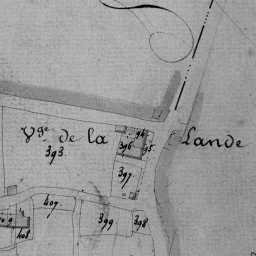 Vge de la Lande
394
395
396
393
397
407
399
398
408